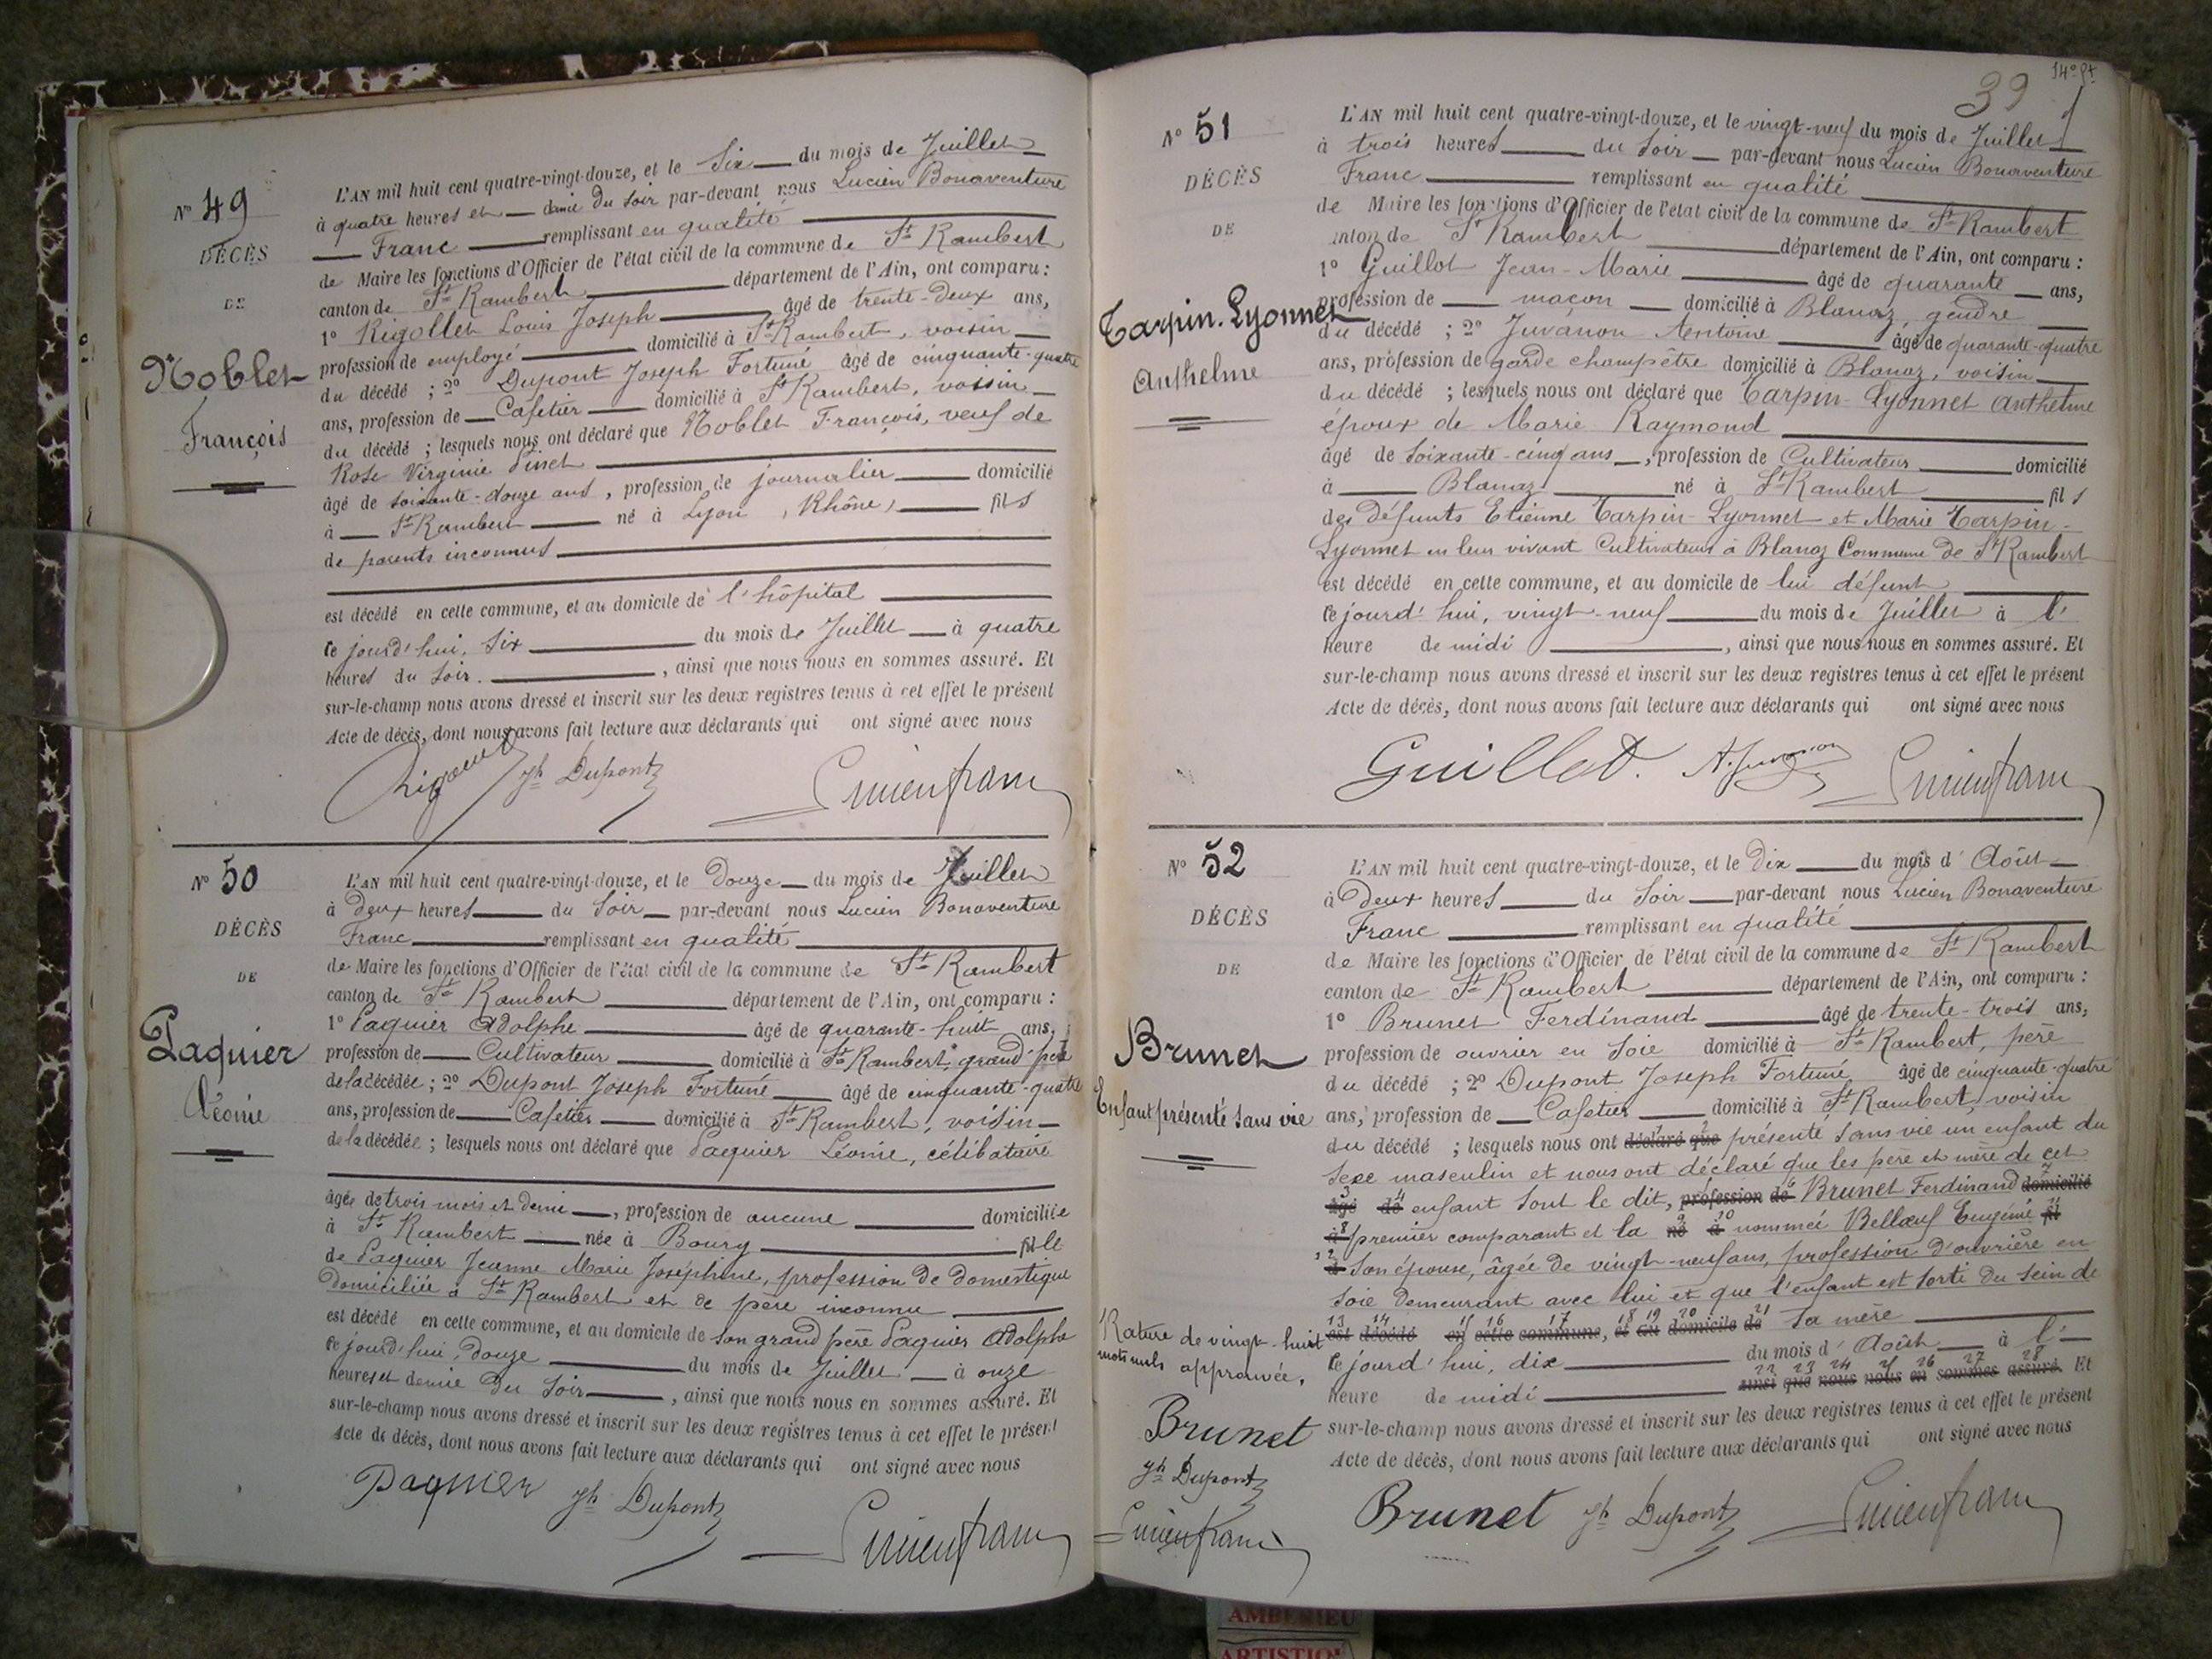 N° 49
DÉCÈS
DE
Noblet
François
L'AN mil huit cent quatre-vingt-douze, et le Six du mois de Juillet
à quatre heures et demie du soir par-devant nous Lucien Bonaventure
Franc remplissant en qualité
de Maire les fonctions d'Officier de l'état civil de la commune de St Rambert
canton de St Rambert département de l'Ain, ont comparu :
1° Rigollet Louis Joseph âgé de trente-deux ans,
profession de employé domicilié à St Rambert, voisin
du décédé ; 2° Dupont Joseph Fortuné âgé de cinquante-quatre
ans, profession de Cafetier domicilié à St Rambert, voisin
du décédé ; lesquels nous ont déclaré que Noblet François, veuf de
Rose Virginie Pinet
âgé de soixante-douze ans, profession de journalier domicilié
à St Rambert né à Lyon (Rhône) fils
de parents inconnus
est décédé en cette commune, et au domicile de l'hôpital
ce jourd'hui, Six du mois de Juillet à quatre
heures du soir. , ainsi que nous nous en sommes assuré. Et
sur-le-champ nous avons dressé et inscrit sur les deux registres tenus à cet effet le présent
Acte de décès, dont nous avons fait lecture aux déclarants qui ont signé avec nous
Jh Dupont
Lucien franc
N° 50
DÉCÈS
DE
Paquier
Léonie
L'AN mil huit cent quatre-vingt-douze, et le Douze du mois de Juillet
à Deux heures du Soir par-devant nous Lucien Bonaventure
Franc remplissant en qualité
de Maire les fonctions d'Officier de l'état civil de la commune de St Rambert
canton de St Rambert département de l'Ain, ont comparu :
1° Paquier Adolphe âgé de quarante-huit ans,
profession de Cultivateur domicilié à St Rambert, grand père
de la décédée ; 2° Dupont Joseph Fortuné âgé de cinquante-quatre
ans, profession de Cafetier domicilié à St Rambert, voisin
de la décédée ; lesquels nous ont déclaré que Paquier Léonie, célibataire
âgée de trois mois et demi , profession de aucune domiciliée
à St Rambert née à Bourg fille
de Paquier Jeanne Marie Joséphine, profession de domestique
Domiciliée à St Rambert et de père inconnu
est décédé en cette commune, et au domicile de son grand père Paquier Adolphe
ce jourd'hui, douze du mois de Juillet à onze
heures et demie du Soir , ainsi que nous nous en sommes assuré. Et
sur-le-champ nous avons dressé et inscrit sur les deux registres tenus à cet effet le présent
Acte de décès, dont nous avons fait lecture aux déclarants qui ont signé avec nous
Paquier Jh Dupont
Lucien franc
39
N° 51
DÉCÈS
DE
Tarpin-Lyonnet
Anthelme
L'AN mil huit cent quatre-vingt-douze, et le vingt-neuf du mois de Juillet
à trois heures du Soir par-devant nous Lucien Bonaventure
Franc remplissant en qualité
de Maire les fonctions d'Officier de l'état civil de la commune de St Rambert
canton de St Rambert département de l'Ain, ont comparu :
1° Guillot Jean-Marie âgé de quarante ans,
profession de maçon domicilié à Blanaz, gendre
du décédé ; 2° Juvanon Antoine âgé de quarante-quatre
ans, profession de garde champêtre domicilié à Blanaz, voisin
du décédé ; lesquels nous ont déclaré que Tarpin-Lyonnet Anthelme
époux de Marie Raymond
âgé de soixante-cinq ans , profession de Cultivateur domicilié
à Blanaz né à St Rambert fils
des défunts Etienne Tarpin-Lyonnet et Marie Tarpin-
Lyonnet en leur vivant Cultivateurs à Blanaz Commune de St Rambert
est décédé en cette commune, et au domicile de lui défunt
ce jourd'hui, vingt-neuf du mois de Juillet à l'
heure de midi , ainsi que nous nous en sommes assuré. Et
sur-le-champ nous avons dressé et inscrit sur les deux registres tenus à cet effet le présent
Acte de décès, dont nous avons fait lecture aux déclarants qui ont signé avec nous
Guillot. A. Juvanon Lucien franc
N° 52
DÉCÈS
DE
Brunet
Enfant présenté sans vie
L'AN mil huit cent quatre-vingt-douze, et le Dix du mois d'Août
à Deux heures du Soir par-devant nous Lucien Bonaventure
Franc remplissant en qualité
de Maire les fonctions d'Officier de l'état civil de la commune de St Rambert
canton de St Rambert département de l'Ain, ont comparu :
1° Brunet Ferdinand âgé de trente-trois ans,
profession de ouvrier en Soie domicilié à St Rambert, père
du décédé ; 2° Dupont Joseph Fortuné âgé de cinquante-quatre
ans, profession de Cafetier domicilié à St Rambert, voisin
du décédé ; lesquels nous ont déclaré que présenté sans vie un enfant du
sexe masculin et nous ont déclaré que les père et mère de cet
âgé de enfant sont le dit, profession de Brunet Ferdinand domicilié
à premier comparant et la né à nommée Bellœuf Eugénie fil
à Son épouse, âgée de vingt-neuf ans, profession d'ouvrière en
soie demeurant avec lui et que l'enfant est sorti du sein de
est décédé en cette commune, et au domicile de sa mère
ce jourd'hui, dix du mois d'Août à l'
heure de midi ainsi que nous nous en sommes assuré. Et
sur-le-champ nous avons dressé et inscrit sur les deux registres tenus à cet effet le présent
Acte de décès, dont nous avons fait lecture aux déclarants qui ont signé avec nous
Brunet Jh Dupont Lucien franc
Rature de vingt-huit
mots nuls approuvée,
Brunet
Jh Dupont
Lucien franc
AMBERIEU